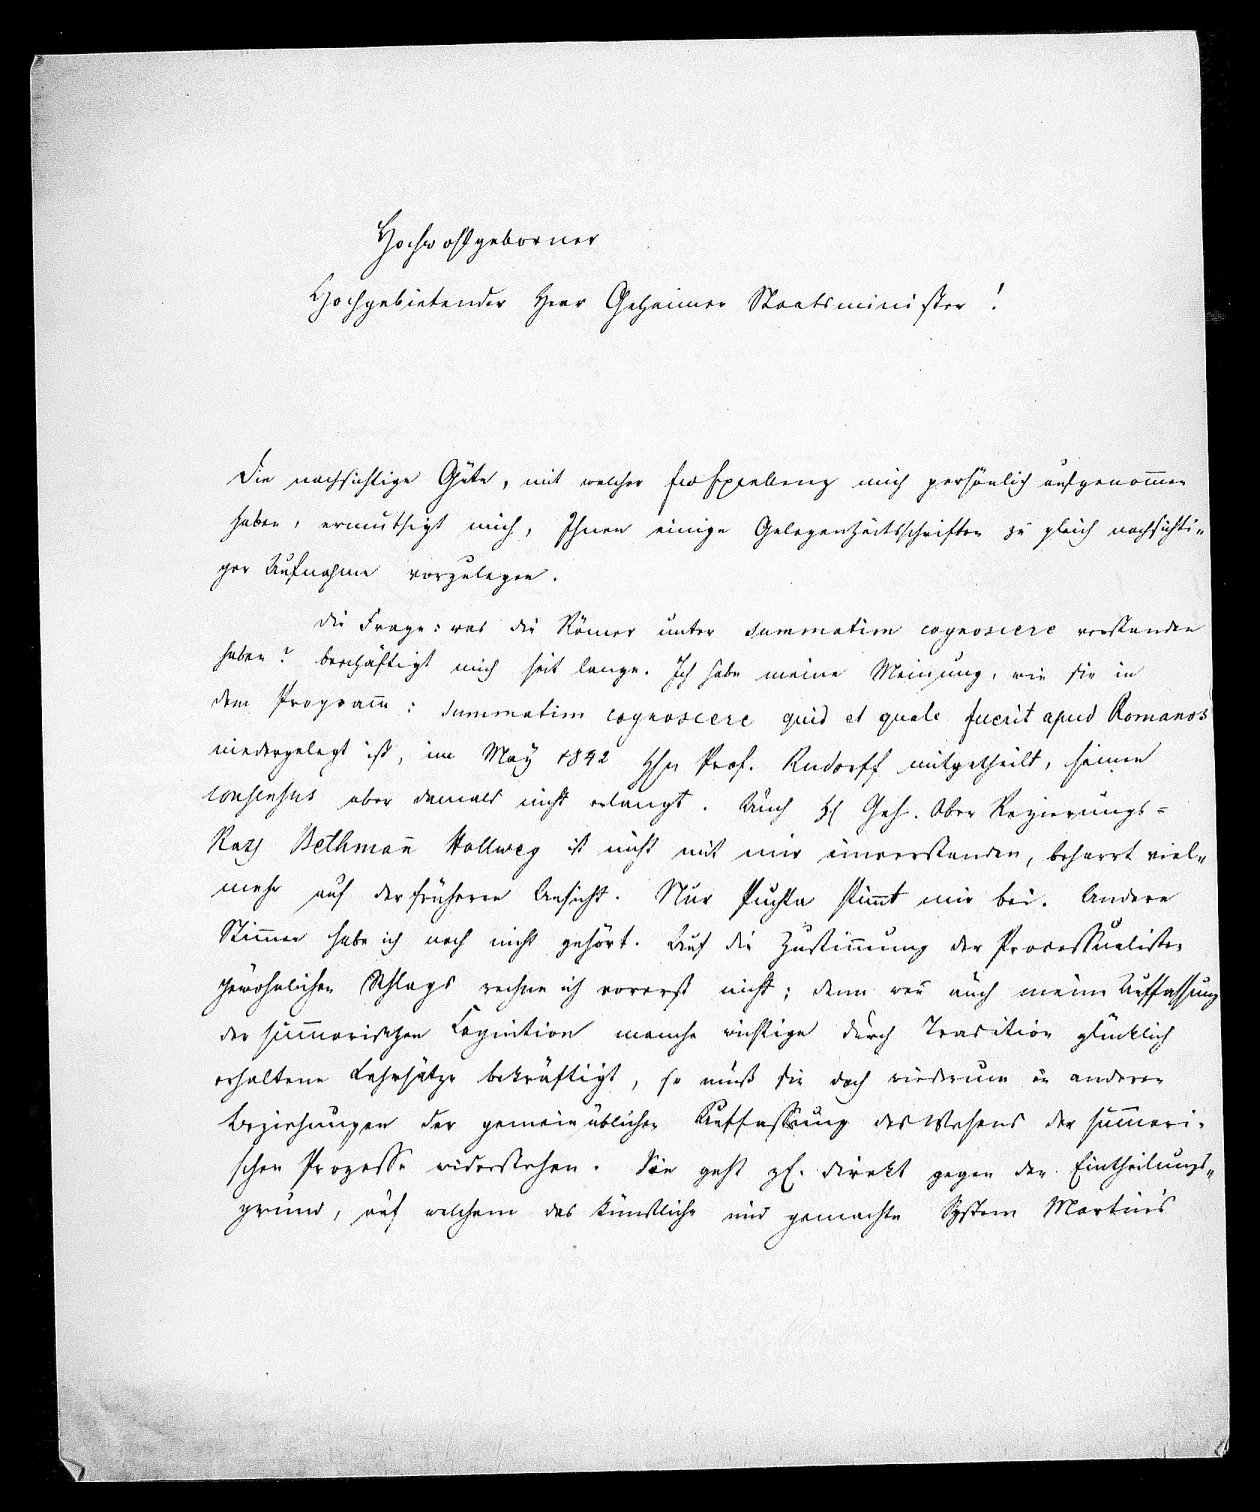 Hochwohlgeborner
Hochgebietender Herr Geheimer Staatsminister!
Die nachsichtige Güte, mit welcher Ew Excellenz mich persönlich aufgenom̄en
haben, ermuthigt mich, Ihnen einige Gelegenheitsschriften zu gleich nachsichti-
ger Aufnahme vorzulegen.
Die Frage: was die Römer unter summatim cognoscere verstanden
haben? beschäftigt mich seit lange. Ich habe meine Meinung, wie sie in
dem Program̄: summatim cognoscere quid et quale fuerit apud Romanos
niedergelegt ist, im May 1842 Hhn Prof. Rudorff mitgetheilt, seinen
consensus aber damals nicht erlangt. Auch H Geh. Ober Regierungs-
Rath Bethman̄ Hollweg ist nicht mit mir einverstanden, beharrt viel-
mehr auf der früheren Ansicht. Nur Puchta stim̄t mir bei. Andere
Stim̄en habe ich noch nicht gehört. Auf die Zustim̄ung der Processualisten
gewöhnlichen Schlags rechne ich vorerst nicht; denn wen̄ auch meine Auffassung
der sum̄arischen Cognition manche wichtige durch Tradition glücklich
erhaltene Lehrsätze bekräftigt, so muß sie doch wiederum in anderen
Beziehungen der gemeinüblichen Auffassung des Wesens der sum̄ari-
schen Prozesse widerstehen. Sie geht zE. direkt gegen den Eintheilungs-
grund, auf welchem das künstliche und gemachte System Martin's